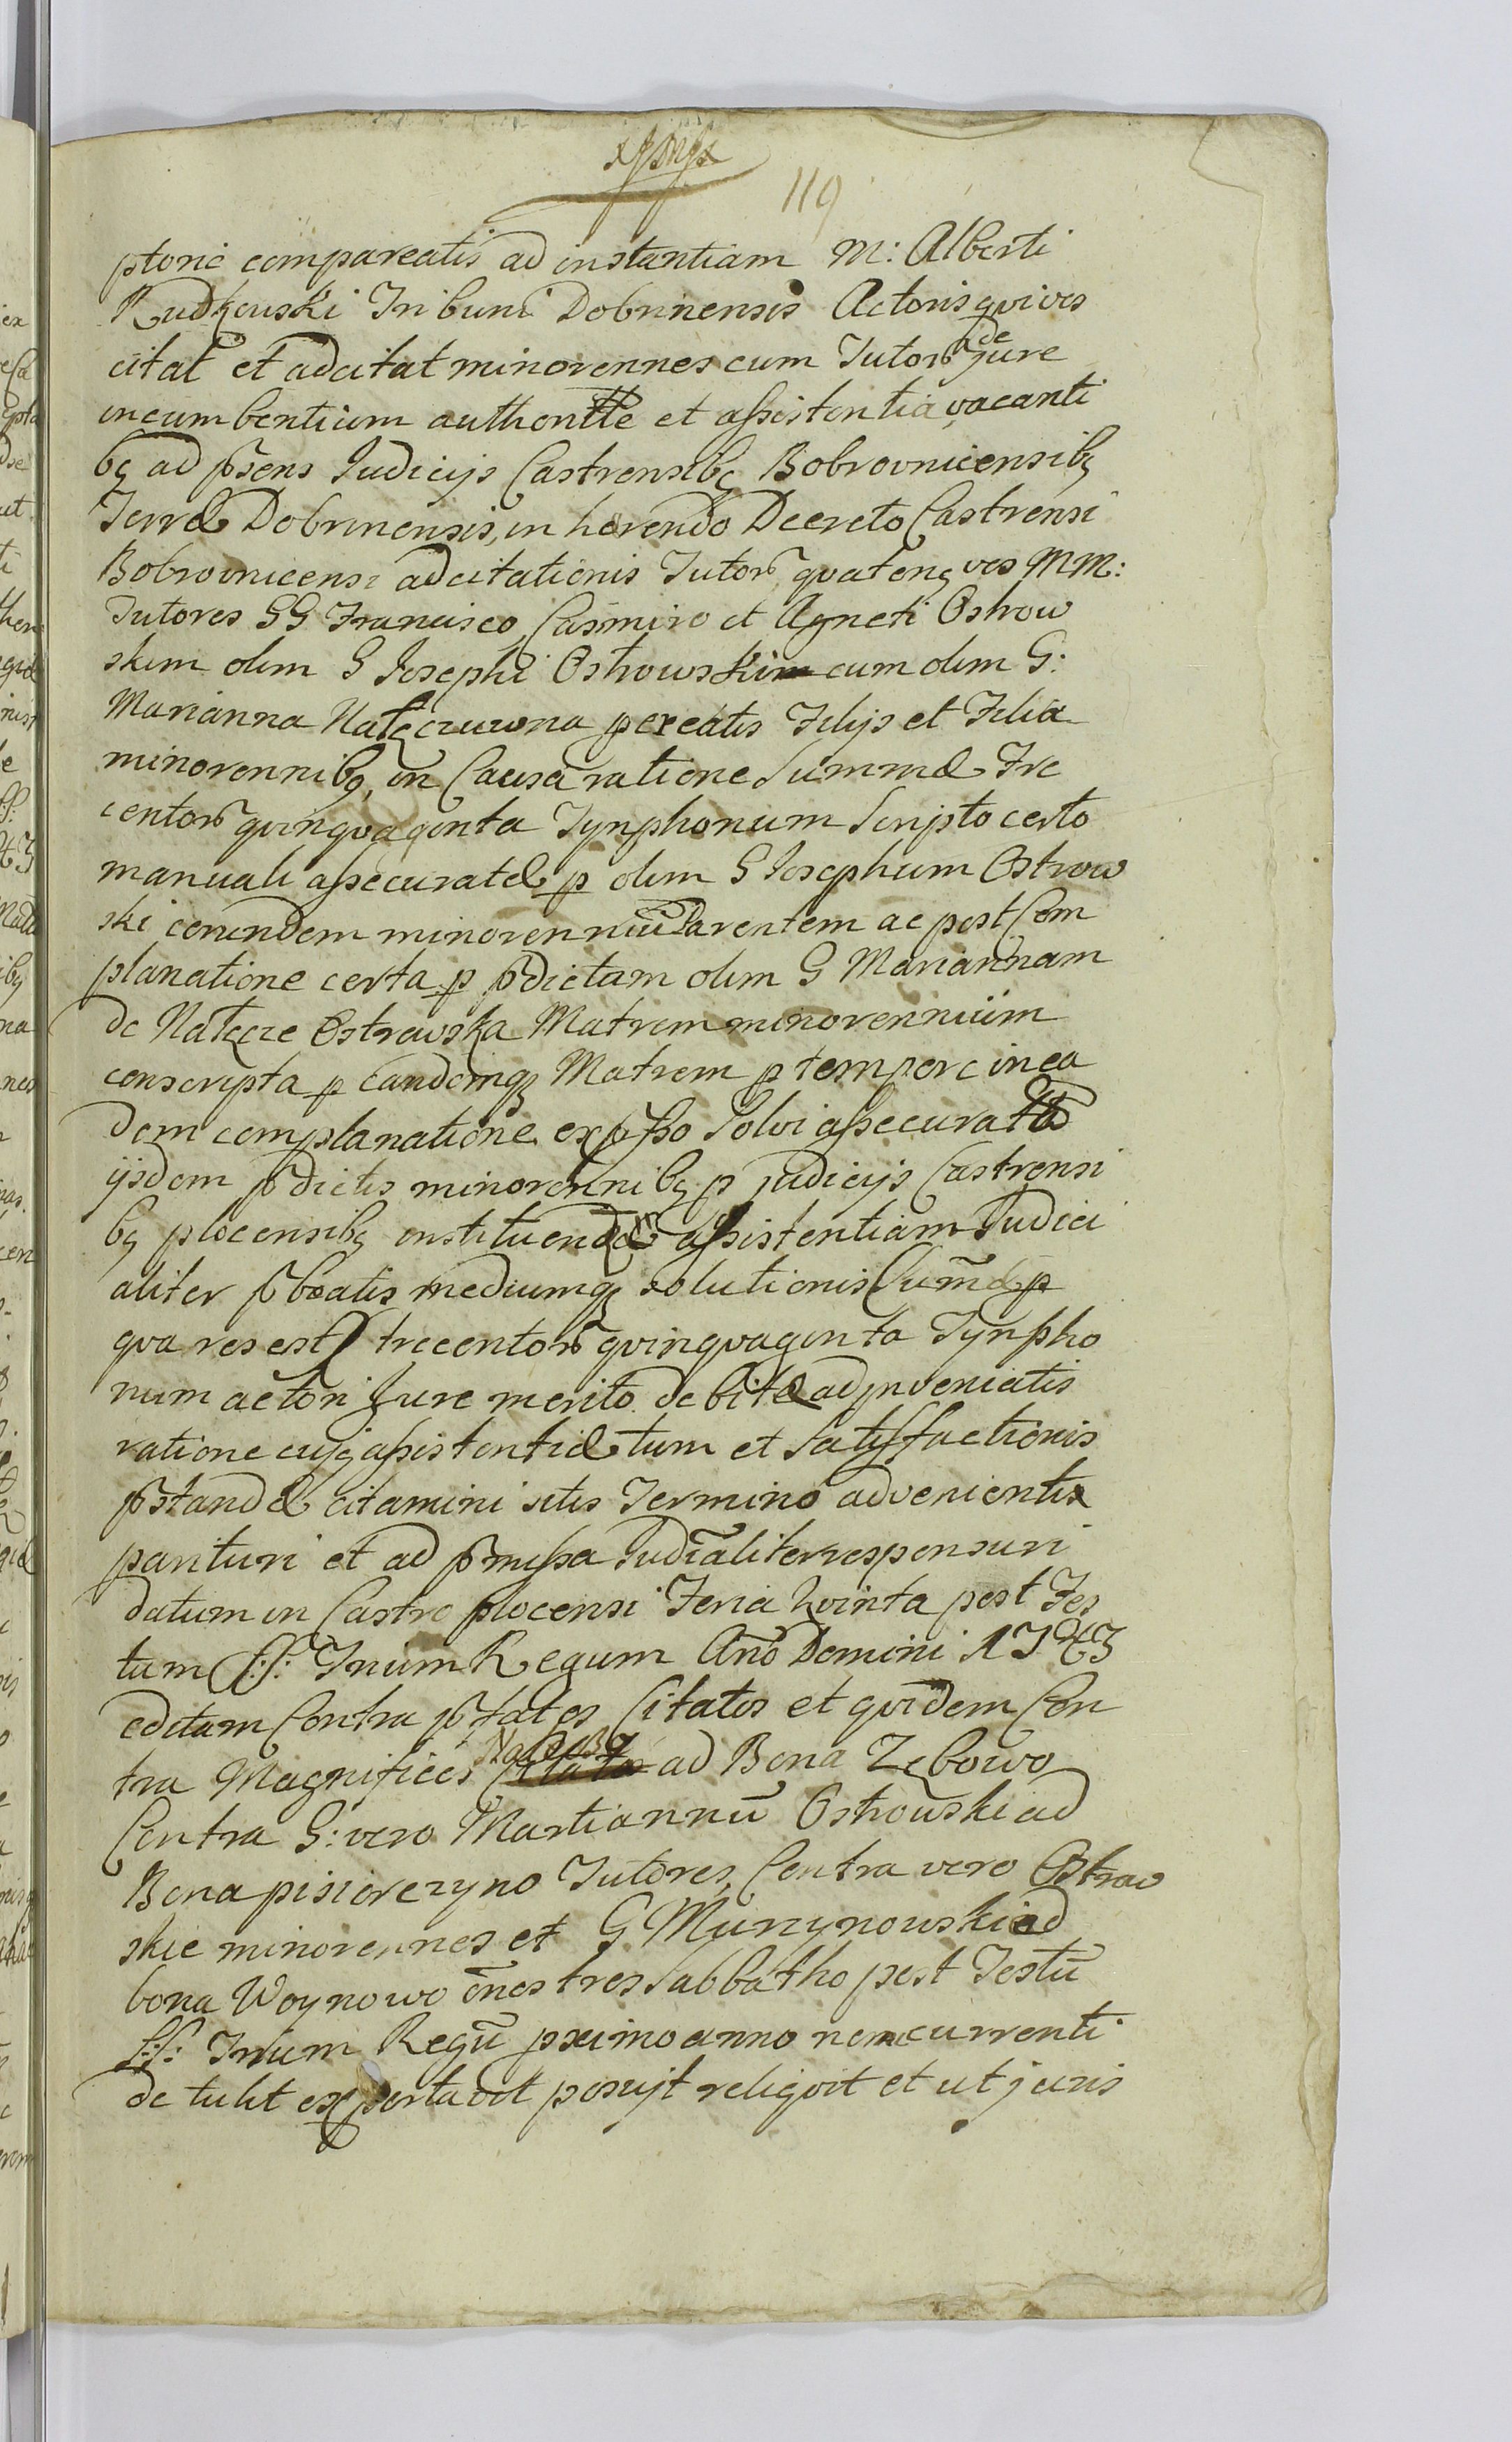 119
ptorie compareatis ad instantiam M: Alberti
Rudkowski Tribuni Dobrinensis Actoris qvi vos
citat et adcitat minorennes cum Tutorũ de jure
incumbentium authoritte et assistentia, vacanti
bq ad p̃sens Judicijs Castrensibq Bobrovnicensibq
Terræ Dobrinensis, in hærendo Decreto Castrensi
Bobrovnicensi adcitationis Tutorũ qvatenq vos MM:
Tutores GG Francisco, Casimiro et Agneti Ostrow
skim olim G Josephi Ostrowskim cum olim G:
Marianna Natęczuwna pcreatis Filijs et Filia
minorennibq, in Causa ratione Summæ Tre
centorũ qvinqvaginta Tynphonum Scripto certo
manuali assecuratæ p olim G Josephum Ostrow
ski eorundem minorenniũ Parentem ac post Com
planatione certa p p̃dictam olim G Mariannam
de Natęcze Ostrowska Matrem minorennium
conscripta p eandemqz Matrem p tempore in ea
dem complanatione exp̃sso Solvi assecurattæ
ijsdem p̃dictis minorennibq p judicijs Castrensi
bq plocensibq instituendæ in assistentiam Judici
aliter p̃beatis mediumqz solutionis Sum̃æ p
qva res est) trecentorũ qvinqvaginta Tynpho
num actori Jure merito debitæ adjnveniatis
ratione cujq assistentiæ tum et Satisfactionis
p̃standæ citamini sitis Termino advenientis
parituri et ad p̃missa Judĩaliter responsuri
datum in Castro plocensi Feria Qvinta post Fes
tum S:S: Trium Regum Año Domini 1743
editam Contra p̃fatos Citatos et qvidem Con
tra Magnificos ad Bona Zębowo
Contra G: vero Martiannũ Ostrowski ad
Bona pisiorczyno Tutores, Contra vero Ostrow
skie minorennes et G Murzynowski ad
bona Woynowo õnes tres Sabbatho post Festũ
S:S: Trium Regũ pximo anno nonc currenti
detulit exportavit posujt reliqvit et ut juris